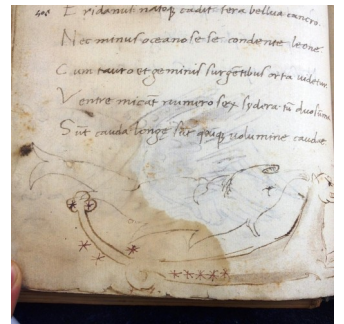 E ridanus natoq cadit fera bellua cancro.
N ec minus oceano se se condente leone
C um tauro et geminis surgetibus orta videtur
V entre micat numero sex sydera tu duo
S ut cauda longe sut quiq volumine caudae